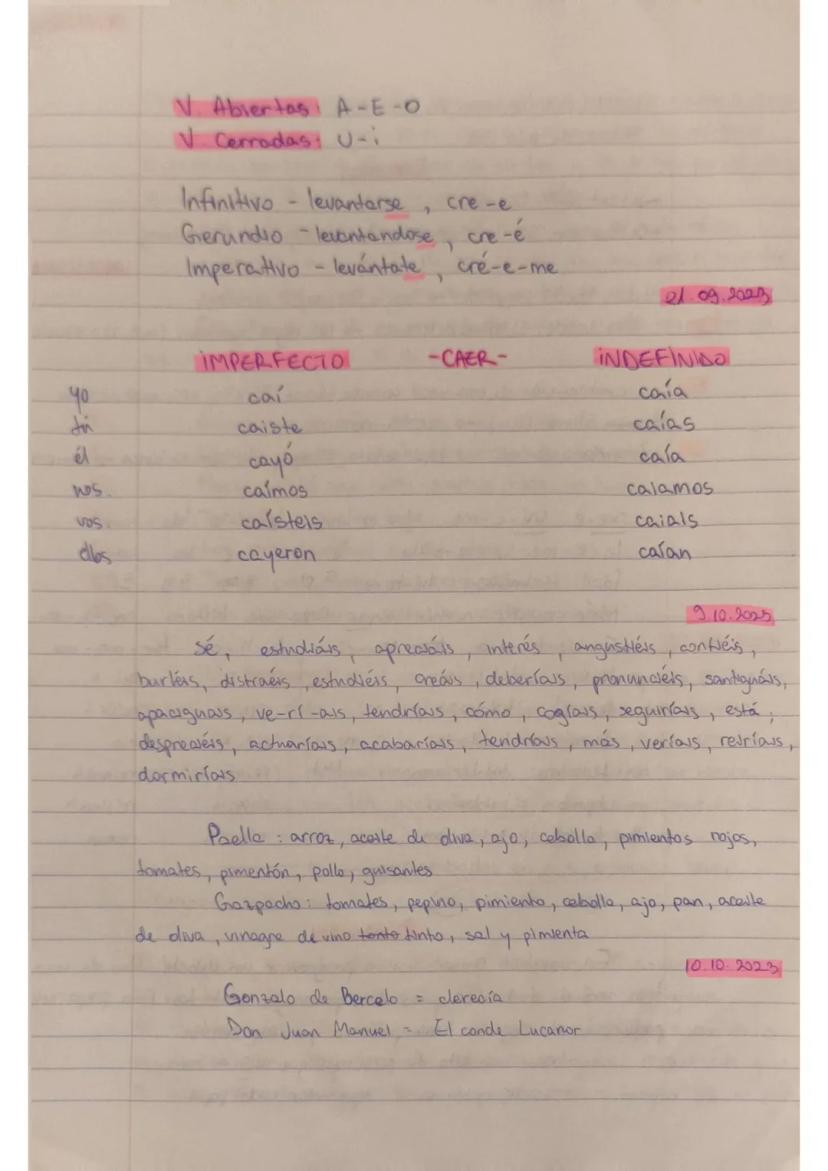 V. Abiertas: A-E-O
V. Cerradas: U-i
Infinitivo - levantarse, cre-e
Gerundio - levantandose, cre-é
Imperativo - levántate, cré-e-me
21.09.2023
IMPERFECTO -CAER- INDEFINIDO
yo caí caía
tú caiste caías
él cayó caía
nos. caímos caíamos
vos. caísteis caíais
ellos cayeron caían
9.10.2023
Sé, estudiáis, apreciáis, interés, angustiéis, confiéis,
burléis, distraéis, estudiéis, creáis, deberíais, pronunciéis, santiguáis,
apaciguais, ve-rí-ais, tendríais, cómo, cogíais, seguiríais, está,
despreciéis, actuaríais, acabaríais, tendríais, más, veríais, reiríais,
dormiríais
Paella: arroz, aceite de oliva, ajo, cebolla, pimientos rojos,
tomates, pimentón, pollo, guisantes
Gazpacho: tomates, pepino, pimiento, cebolla, ajo, pan, aceite
de oliva, vinagre de vino tonto tinto, sal y pimienta
10.10.2023
Gonzalo de Bercelo = clerecía
Don Juan Manuel = El conde Lucanor